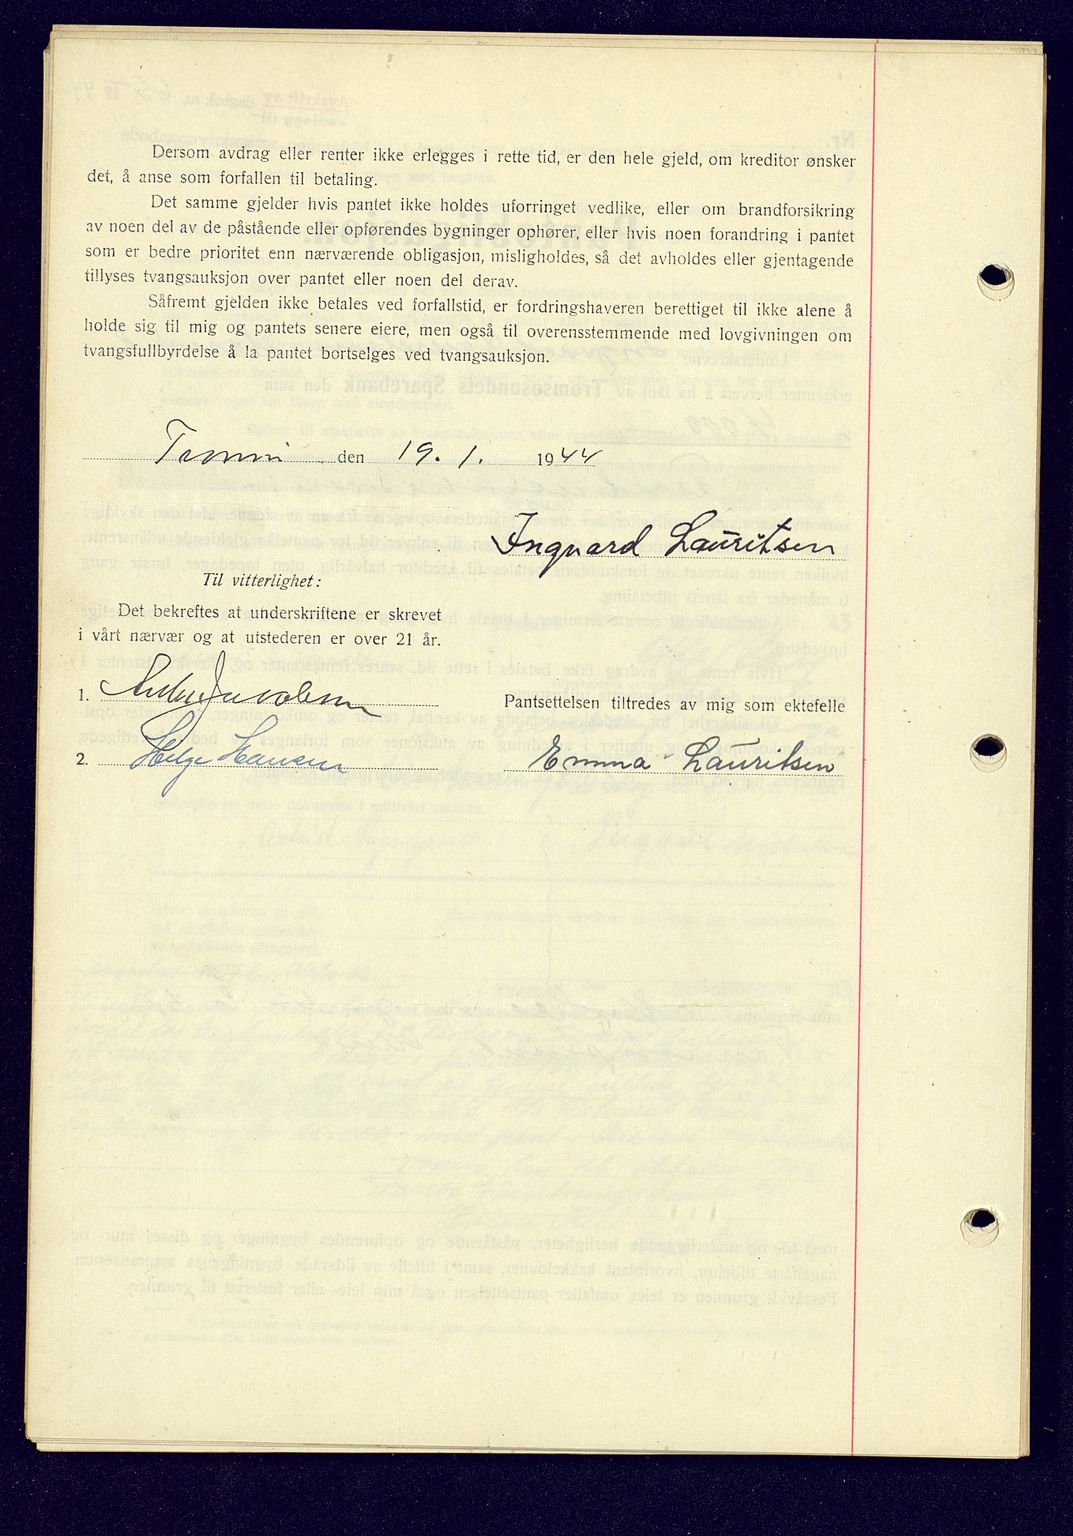 Dersom avdrag eller renter ikke erlegges i rette tid, er den hele gjeld, om kreditor ønsker
det, å anse som forfallen til betaling.
Det samme gjelder hvis pantet ikke holdes uforringet vedlike, eller om brandforsikring
av noen del av de påstående eller opførendes bygninger ophører, eller hvis noen forandring i pantet
som er bedre prioritet enn nærværende obligasjon, misligholdes, så det avholdes eller gjentagende
tillyses tvangsauksjon over pantet eller noen del derav.
Såfremt gjelden ikke betales ved forfallstid, er fordringshaveren berettiget til ikke alene å
holde sig til mig og pantets senere eiere, men også til overensstemmende med lovgivningen om
tvangsfullbyrdelse å la pantet bortselges ved tvangsauksjon.
den 19. 1. 1944
Ingvard Lauritsen
Til vitterlighet:
Det bekreftes at underskriftene er skrevet
i vårt nærvær og at utstederen er over 21 år.
1. Jacobsen
Pantsettelsen tiltredes av mig som ektefelle
2. Helge Hansen
Emma Lauritsen